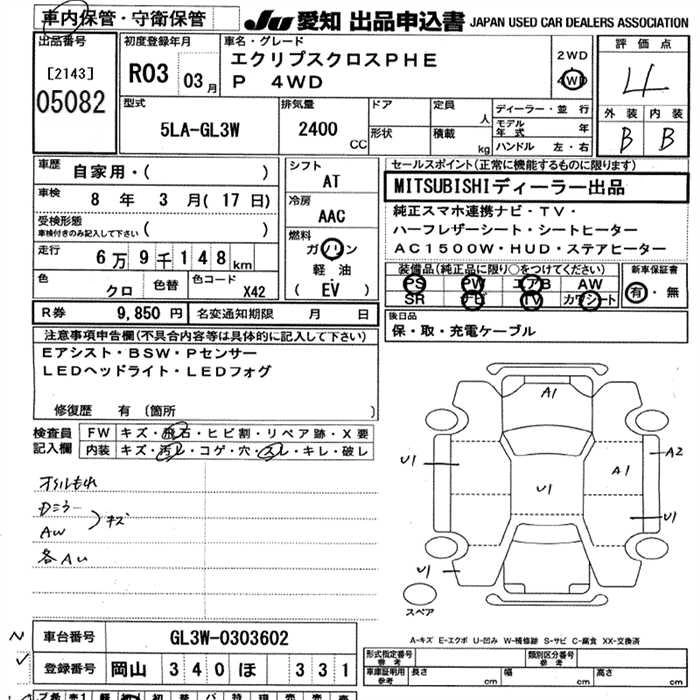 車内保管・守衛保管 JU 愛知 出品申込書 JAPAN USED CAR DEALERS ASSOCIATION
出品番号 初度登録年月 車名・グレード 評価点
[2143] R03 03月 エクリプスクロスPHE 2WD 4
05082 P 4WD 4WD
型式 排気量 ドア 定員 人 ディーラー・並行 外装 内装
5LA-GL3W 2400 CC 形状 積載 kg モデル年式 年 B B
ハンドル 左・右
車歴 自家用・( ) シフト セールスポイント(正常に機能するものに限ります)
AT MITSUBISHIディーラー出品
車検 8年3月(17日) 冷房 純正スマホ連携ナビ・TV・
受検形態 ( ) AAC ハーフレザーシート・シートヒーター
車検付きのみ記入して下さい 燃料 AC1500W・HUD・ステアヒーター
走行 6万9千148km ガソリン 装備品(純正品に限り○をつけてください) 新車保証書
軽油 PS PW エアB AW 有・無
色 クロ 色替 色コード X42 (EV) SR ナビ TV カワシート
R券 9,850円 名変通知期限 月 日 後日品
注意事項申告欄(不具合内容等は具体的に記入して下さい) 保・取・充電ケーブル
Eアシスト・BSW・Pセンサー
LEDヘッドライト・LEDフォグ
修復歴 有 〔箇所 〕
検査員 FW キズ・飛石・ヒビ割・リペア跡・X要
記入欄 内装 キズ・汚レ・コゲ・穴・スレ・キレ・破レ
オイルもれ
Dミラー
AW
キズ
各AU
A1
U1
U1
A1
A2
U1
U1
スペア
A-キズ E-エクボ U-凹み W-補修跡 S-サビ C-腐食 XX-交換済
車台番号 GL3W-0303602 形式指定番号 参考 類別区分番号 参考
登録番号 岡山 340 ほ 331 車庫証明用 参考 長さ cm 幅 cm 高さ cm